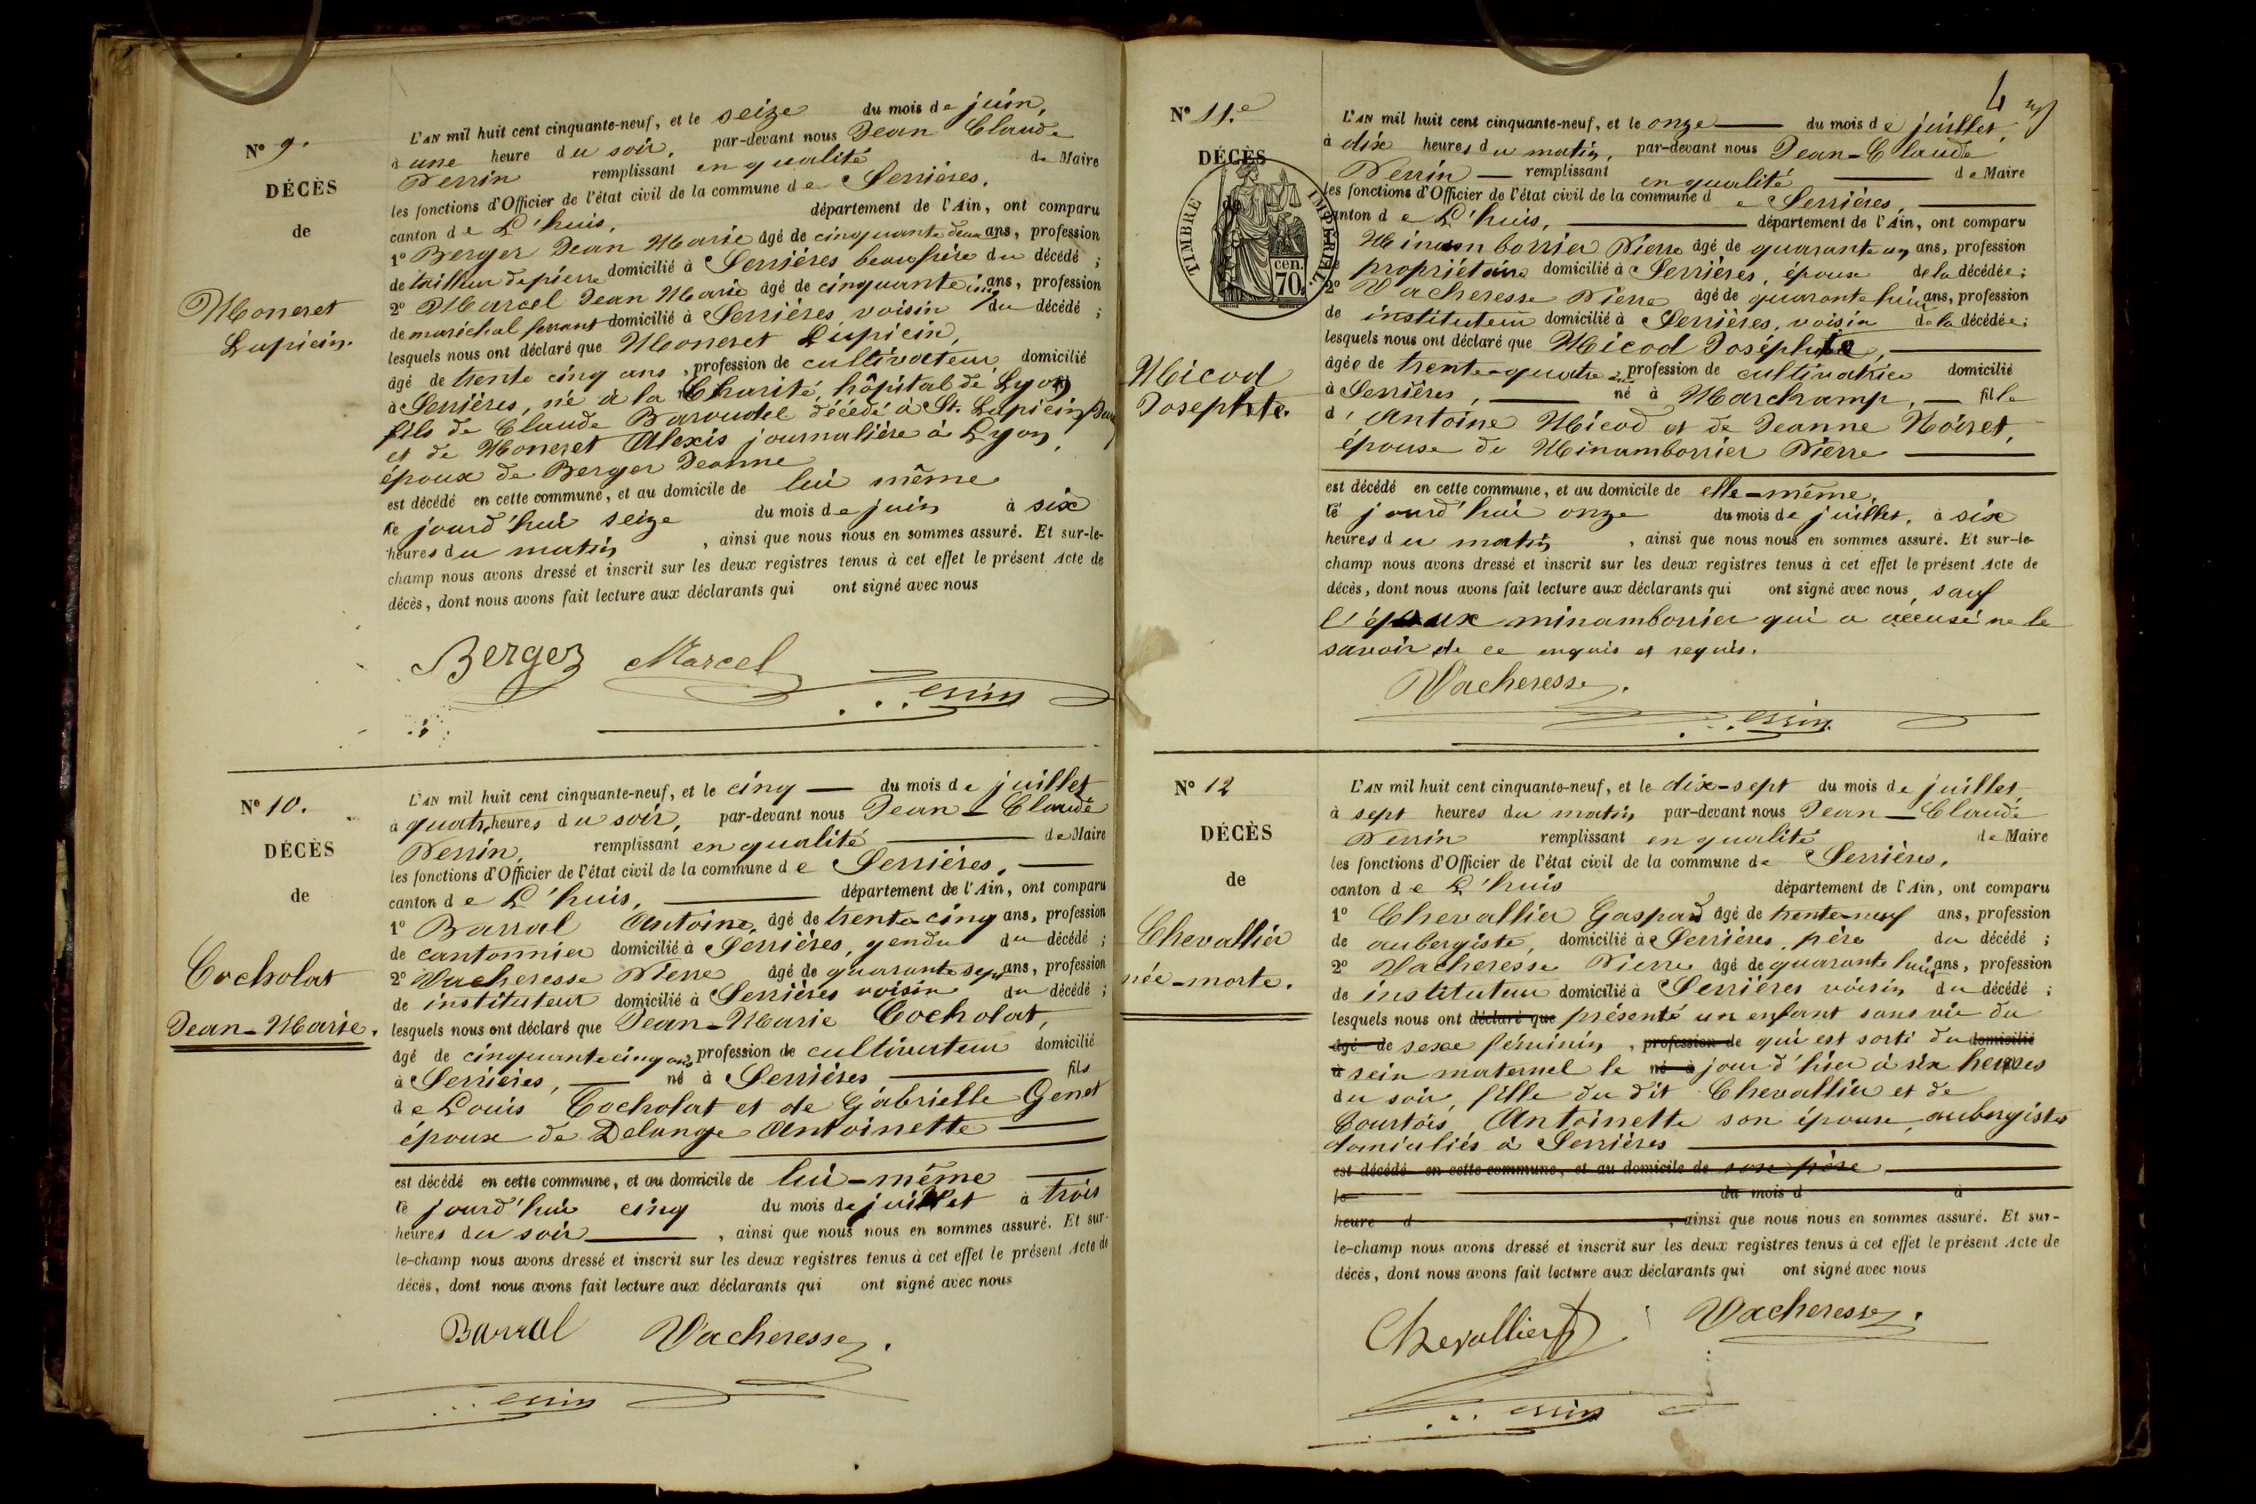 Nº 9.
DÉCÈS
de
Moneret
Lupicin.
L'AN mil huit cent cinquante-neuf, et le seize du mois de juin,
à une heure du soir, par-devant nous Jean Claude
Perrin remplissant en qualité de Maire
les fonctions d'Officier de l'état civil de la commune de Serrières,
canton de L'huis, département de l'Ain, ont comparu
1º Berger Jean Marie âgé de cinquante deux ans, profession
de tailleur de pierre domicilié à Serrières beau frère du décédé ;
2º Marcel Jean Marie âgé de cinquante cinq ans, profession
de maréchal ferrant domicilié à Serrières voisin du décédé ;
lesquels nous ont déclaré que Moneret Lupicin,
âgé de trente cinq ans, profession de cultivateur domicilié
à Serrières, né à la Charité, hôpital de Lyon
fils de Claude décédé à St. Lupicin
et de Moneret Alexis journalière à Lyon,
époux de Berger Jeanne
est décédé en cette commune, et au domicile de lui même
ce jourd'hui seize du mois de juin à six
heures du matin, ainsi que nous nous en sommes assuré. Et sur-le-
champ nous avons dressé et inscrit sur les deux registres tenus à cet effet le présent Acte de
décès, dont nous avons fait lecture aux déclarants qui ont signé avec nous
Berger Marcel
Perrin
Nº 10.
DÉCÈS
de
Cocholat
Jean-Marie.
L'AN mil huit cent cinquante-neuf, et le cinq du mois de juillet
à quatre heures du soir, par-devant nous Jean-Claude
Perrin, remplissant en qualité de Maire
les fonctions d'Officier de l'état civil de la commune de Serrières,
canton de L'huis, département de l'Ain, ont comparu
1º Barral Antoine, âgé de trente-cinq ans, profession
de cantonnier domicilié à Serrières, gendre du décédé ;
2º Vacheresse Pierre âgé de quarante sept ans, profession
de instituteur domicilié à Serrières voisin du décédé ;
lesquels nous ont déclaré que Jean-Marie Cocholat,
âgé de cinquante cinq ans, profession de cultivateur domicilié
à Serrières, né à Serrières fils
de Louis Cocholat et de Gabrielle Genet
époux de Delange Antoinette
est décédé en cette commune, et au domicile de lui-même
ce jourd'hui cinq du mois de juillet à trois
heures du soir, ainsi que nous nous en sommes assuré. Et sur-
le-champ nous avons dressé et inscrit sur les deux registres tenus à cet effet le présent Acte de
décès, dont nous avons fait lecture aux déclarants qui ont signé avec nous
Barral Vacheresse.
Perrin
4
Nº 11.e
DÉCÈS
TIMBRE IMPERIAL
cen.
70
Micod
Josephte.
L'AN mil huit cent cinquante-neuf, et le onze du mois de juillet,
à dix heures du matin, par-devant nous Jean-Claude
Perrin remplissant en qualité de Maire
les fonctions d'Officier de l'état civil de la commune de Serrières,
canton de L'huis, département de l'Ain, ont comparu
Minamborrier Pierre âgé de quarante un ans, profession
propriétaire domicilié à Serrières, époux de la décédée ;
2º Vacheresse Pierre âgé de quarante huit ans, profession
de instituteur domicilié à Serrières, voisin de la décédée ;
lesquels nous ont déclaré que Micod Joséphte,
âgée de trente-quatre ans, profession de cultivatrice domicilié
à Serrières, né à Marchamp, fille
d'Antoine Micod et de Jeanne Noiret,
épouse de Minamborrier Pierre
est décédé en cette commune, et au domicile de elle-même,
ce jourd'hui onze du mois de juillet, à six
heures du matin, ainsi que nous nous en sommes assuré. Et sur-le-
champ nous avons dressé et inscrit sur les deux registres tenus à cet effet le présent Acte de
décès, dont nous avons fait lecture aux déclarants qui ont signé avec nous, sauf
l'époux minamborrier qui a accusé ne le
savoir de ce enquis et requis.
Vacheresse.
Perrin
Nº 12
DÉCÈS
de
Chevallier
née-morte.
L'AN mil huit cent cinquante-neuf, et le dix-sept du mois de juillet
à sept heures du matin par-devant nous Jean-Claude
Perrin remplissant en qualité de Maire
les fonctions d'Officier de l'état civil de la commune de Serrières,
canton de L'huis département de l'Ain, ont comparu
1º Chevallier Gaspard âgé de trente-neuf ans, profession
de aubergiste, domicilié à Serrières, père du décédé ;
2º Vacheresse Pierre âgé de quarante huit ans, profession
de instituteur domicilié à Serrières voisin du décédé ;
lesquels nous ont déclaré que présenté un enfant sans vie du
âgé de sexe féminin, profession de qui est sorti du domicilié
à sein maternel le né à jour d'hier à six heures
du soir, fille du dit Chevallier et de
Courtois Antoinette son épouse, aubergistes
domiciliés à Serrières
est décédé en cette commune, et au domicile de son père
le du mois d à
heure d, ainsi que nous nous en sommes assuré. Et sur-
le-champ nous avons dressé et inscrit sur les deux registres tenus à cet effet le présent Acte de
décès, dont nous avons fait lecture aux déclarants qui ont signé avec nous
Chevallier Vacheresse.
Perrin